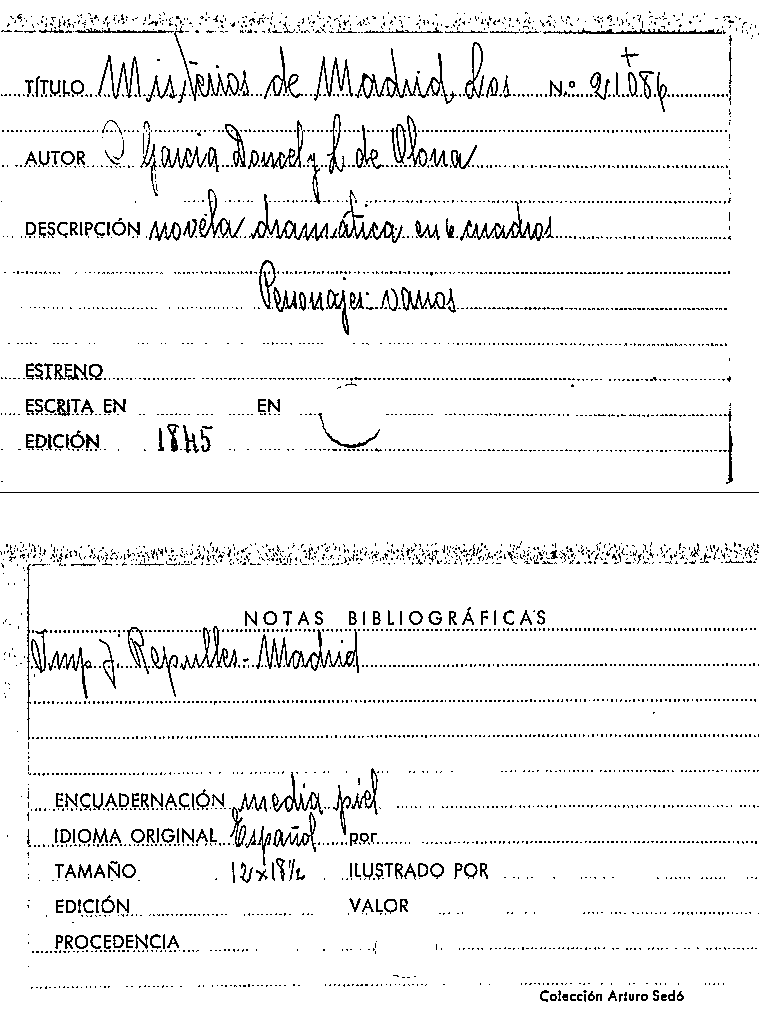 TÍTULO Misterios de Madrid Los N.º 21086
AUTOR C Garcia Doncel y L de Olona
DESCRIPCIÓN novela dramática en 6 cuadros
Personajes: varios
ESTRENO
ESCRITA EN EN
EDICIÓN 1845
NOTAS BIBLIOGRÁFICAS
Imp J. Repulles - Madrid
ENCUADERNACIÓN media piel
IDIOMA ORIGINAL Español por
TAMAÑO 12x18½ ILUSTRADO POR
EDICIÓN VALOR
PROCEDENCIA
Colección Arturo Sedó